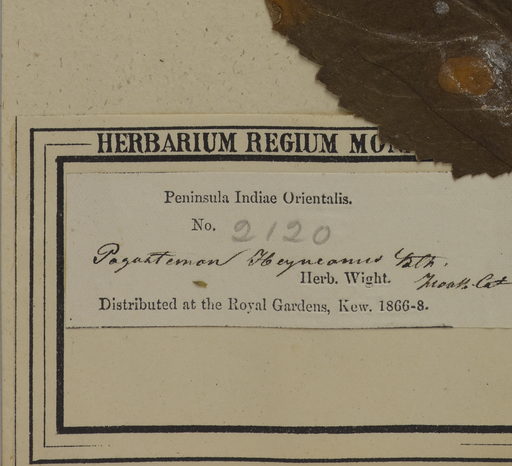 HERBARIUM REGIUM MON
Peninsula Indiae Orientalis.
No. 2120
Pogostemon Heyneanus Bth.
Herb. Wight.
Distributed at the Royal Gardens, Kew. 1866-8.